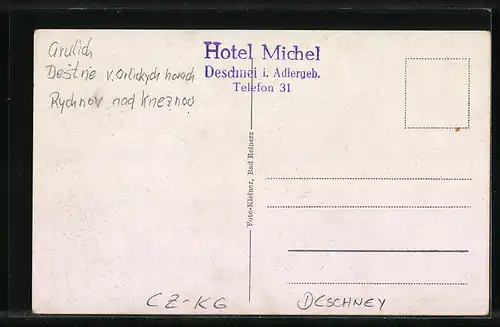 Grulich
Deštne v. Orlickych horach
Rychnov nad Kneznou
Hotel Michel
Deschnei i. Adlergeb.
Telefon 31
Foto-Kleiner, Bad Reinerz
CZ-KG
DESCHNEY